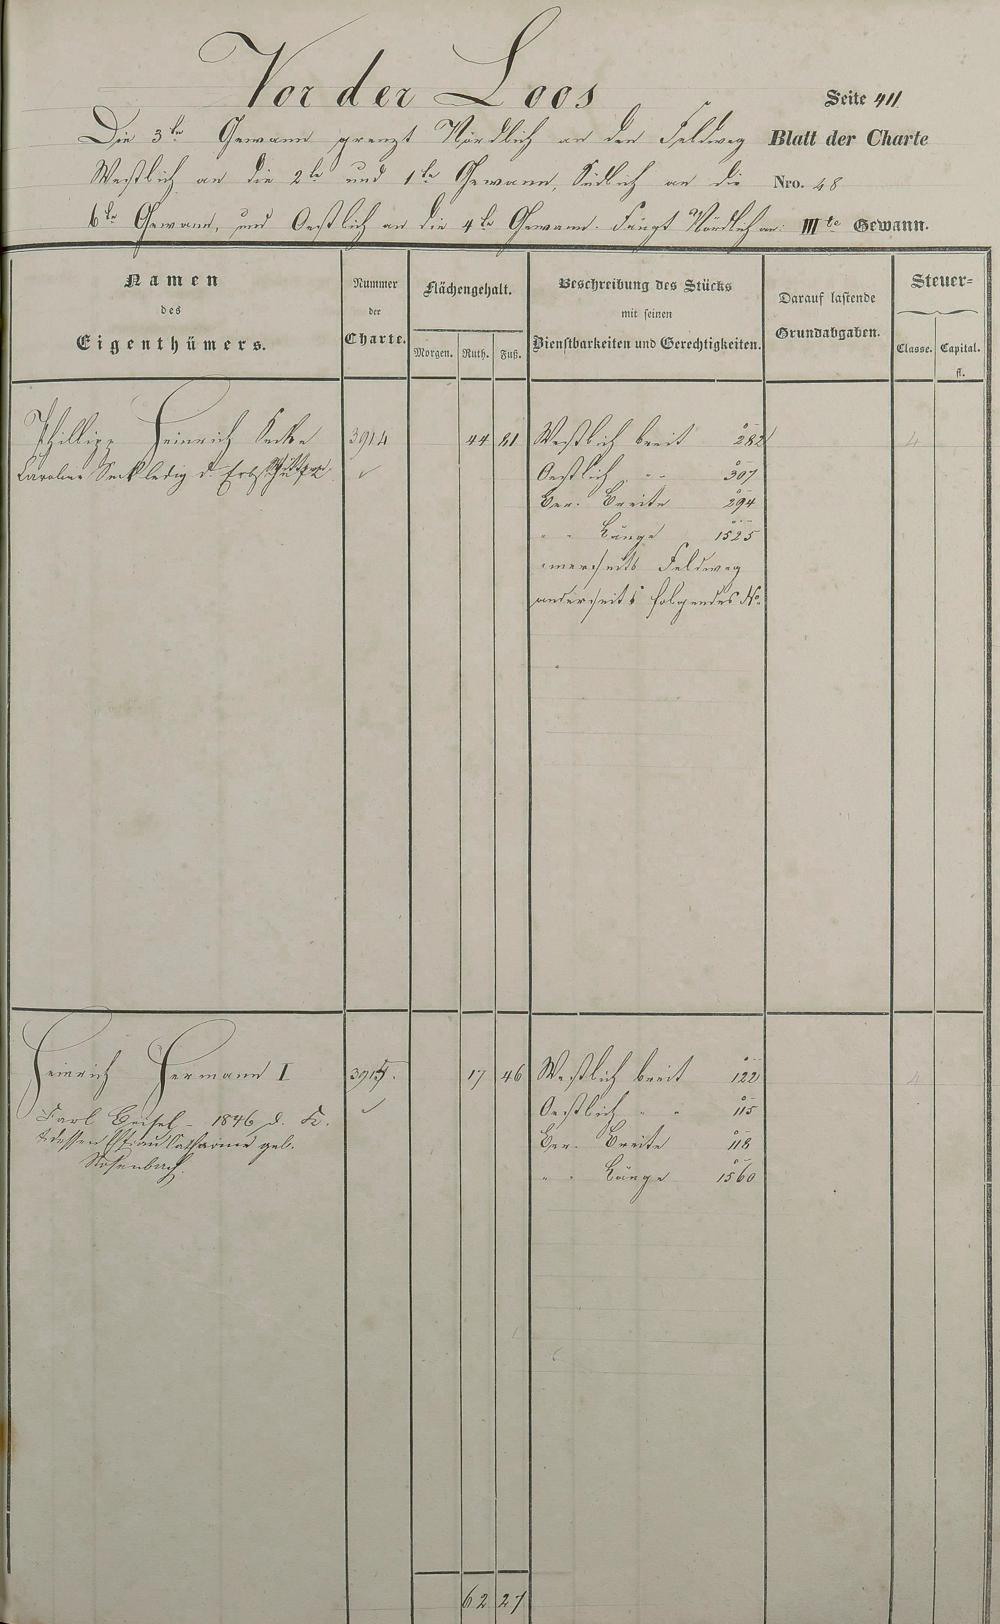 Vor der Loos
Seite 411
Die 3te Gewann grenzt Nördlich an den Feldweg
Blatt der Charte
Westlich an die 2te und 1te Gewann, Südlich an die
Nro. 48
6te Gewann, und Oestlich an die 4te Gewann. Fängt Nördlich an:
IIIte Gewann.
Namen
des
Eigenthümers.
Nummer
der
Charte.
Flächengehalt.
Morgen. Ruth. Fuß.
Beschreibung des Stücks
mit seinen
Dienstbarkeiten und Gerechtigkeiten.
Darauf lastende
Grundabgaben.
Steuer-
Classe. Capital.
fl.
Phillipp Heinrich 3914 44 81 Westlich breit 282 4
Caroline Seck ledig d. Oestlich " " 307
Ber. Breite 294
" " Länge 1525
einerseits Feldweg
anderseits folgendes No.
Heinrich Hermann I 3915. 17 46 Westlich breit 122 4
Carl Beisel - 1846 d. K. Oestlich " " 115
& dessen Ehefrau Catharine geb. Ber. Breite 118
Rosenbach. " " Länge 1560
62 27